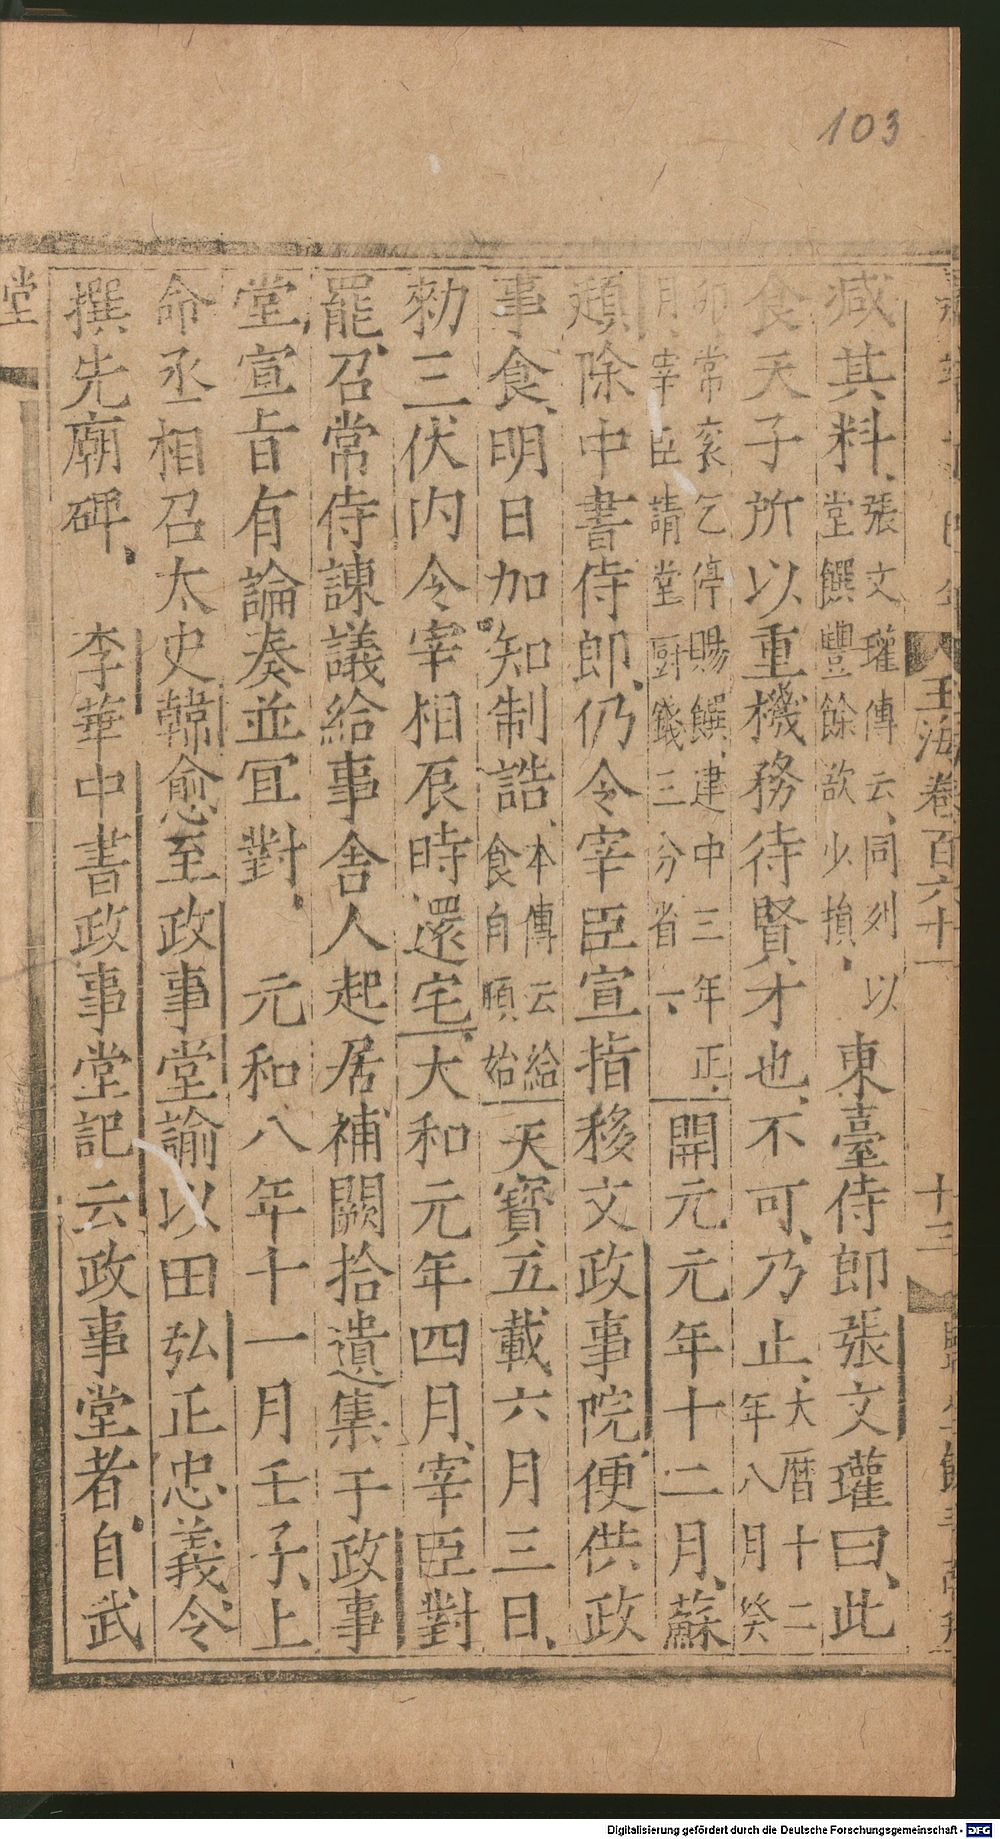 103
玉海卷百六十一
十三
減其料張文瓘傳云同列以堂饌豐餘欲少損東臺侍郎張文瓘曰此
食天子所以重機務待賢才也不可乃止大曆十二年八月癸
卯常衮乞停賜饌建中三年正月宰臣請堂厨錢三分省一開元元年十二月蘇
頲除中書侍郎仍令宰臣宣指移文政事院便供政
事食明日加知制誥本傳云給食自頲始天寶五載六月三日
勑三伏内令宰相辰時還宅大和元年四月宰臣對
罷召常侍諫議給事舍人起居補闕拾遺集于政事
堂宣旨有論奏並宜對元和八年十一月壬子上
命丞相召太史韓愈至政事堂諭以田弘正忠義令
撰先廟碑李華中書政事堂記云政事堂者自武
堂
Digitalisierung gefördert durch die Deutsche Forschungsgemeinschaft - DFG